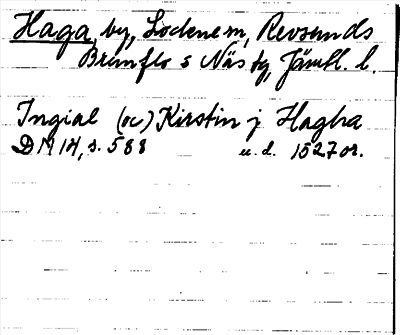 Haga, by, Lockne sn, Revsunds
Brunflo o Näs tg, Jämtl. l.
Ingial (oc) Kirstin j Hagha
DN 14, s. 588 u. d. 1527 or.